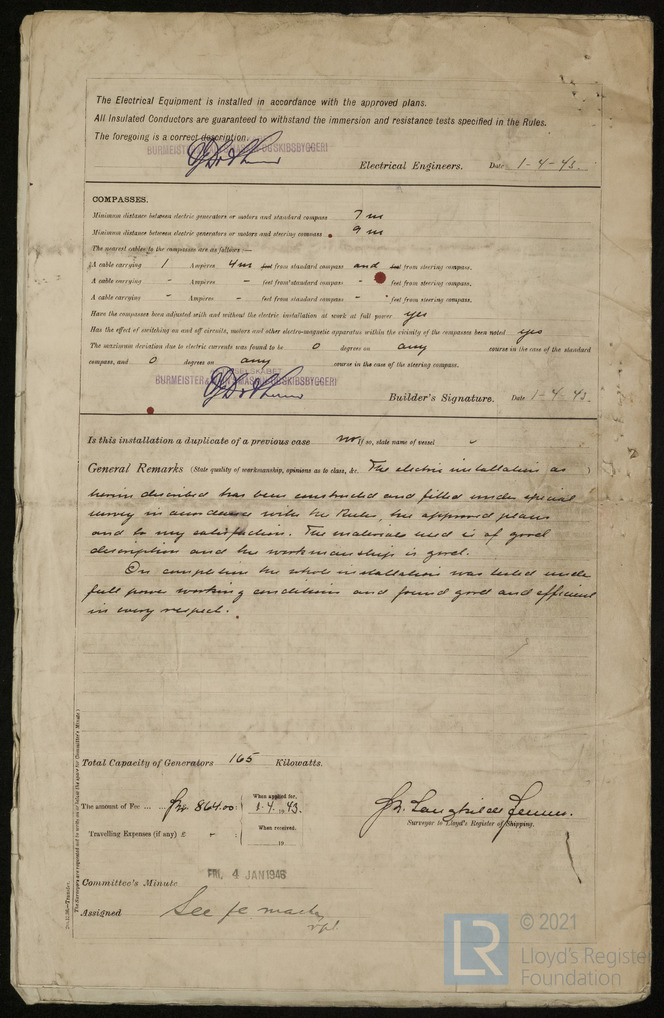 The Electrical Equipment is installed in accordance with the approved plans.
All Insulated Conductors are guaranteed to withstand the immersion and resistance tests specified in the Rules.
The foregoing is a correct description.
BURMEISTER SKIBSBYGGERI
Electrical Engineers. Date 1-4-43.
COMPASSES.
Minimum distance between electric generators or motors and standard compass 7 m
Minimum distance between electric generators or motors and steering compass 9 m
The nearest cables to the compasses are as follows:—
A cable carrying 1 Ampères 4m feet from standard compass and feet from steering compass.
A cable carrying - Ampères - feet from standard compass - feet from steering compass.
A cable carrying - Ampères - feet from standard compass - feet from steering compass.
Have the compasses been adjusted with and without the electric installation at work at full power yes
Has the effect of switching on and off circuits, motors and other electro-magnetic apparatus within the vicinity of the compasses been noted yes
The maximum deviation due to electric currents was found to be 0 degrees on any course in the case of the standard
compass, and 0 degrees on any course in the case of the steering compass.
BURMEISTER SKIBSBYGGERI
Builder's Signature. Date 1-4-43.
Is this installation a duplicate of a previous case no If so, state name of vessel
General Remarks (State quality of workmanship, opinions as to class, &c. The electric installation as
herein described has been constructed and fitted under special
survey in accordance with the Rules, the approved plans
and to my satisfaction. The materials used is of good
description and the workmanship is good.
On completion the whole installation was tested under
full power working conditions and found good and efficient
in every respect.
Total Capacity of Generators 165 Kilowatts.
The amount of Fee ... ... Kr. 864.00 When applied for, 1.4.1943.
Travelling Expenses (if any) £ - : When received, 19
Surveyor to Lloyd's Register of Shipping.
FRI. 4 JAN 1946
Committee's Minute
Assigned See fe machy rpt
The Surveyors are requested not to write on or below the space for Committee's Minute.
© 2021
LR Lloyd's Register
Foundation